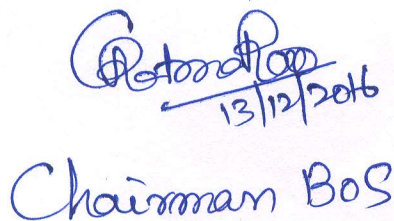 13/12/2016
Chairman BOS